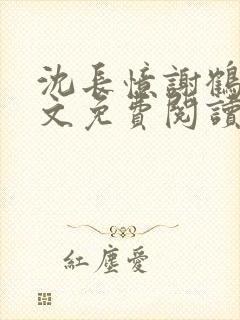 沈長憶謝鶴
文免費閱讀
紅塵愛